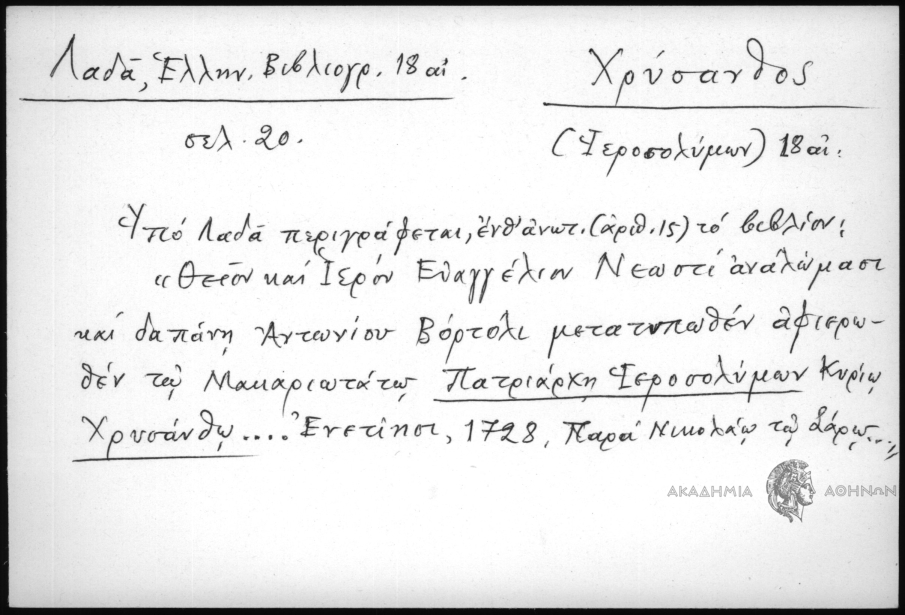 Λαδᾶ, Ἑλλην. Βιβλιογρ. 18 αἰ.
Χρύσανθος
σελ. 20.
(Ἱεροσολύμων) 18 αἰ.
Ὑπό Λαδᾶ περιγράφεται, ἔνθ' ἀνωτ. (ἀριθ. 15) τό βιβλίον:
"Θεῖον καί Ἱερόν Εὐαγγέλιον Νεωστί ἀναλώμασι
καί δαπάνῃ Ἀντωνίου Βόρτολι μετατυπωθέν ἀφιερω-
θέν τῷ Μακαριωτάτῳ Πατριάρχῃ Ἱεροσολύμων Κυρίῳ
Χρυσάνθῳ .... Ἐνετίησι, 1728, Παρά Νικολάῳ τῷ Σάρῳ..."
ΑΚΑΔΗΜΙΑ ΑΘΗΝΩΝ